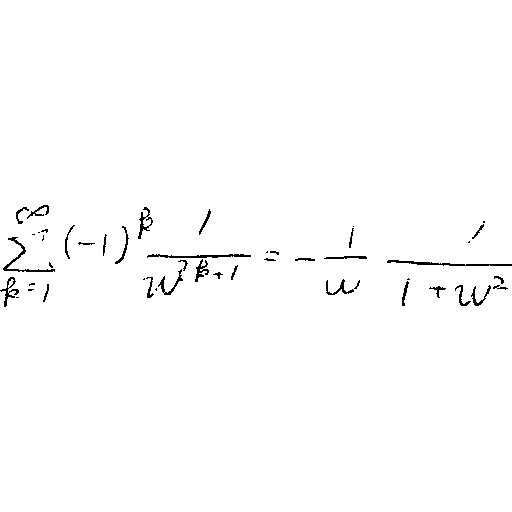 \sum_{k=1}^{\infty} (-1)^k \frac{1}{w^{2k+1}} = - \frac{1}{w} \frac{1}{1+w^2}